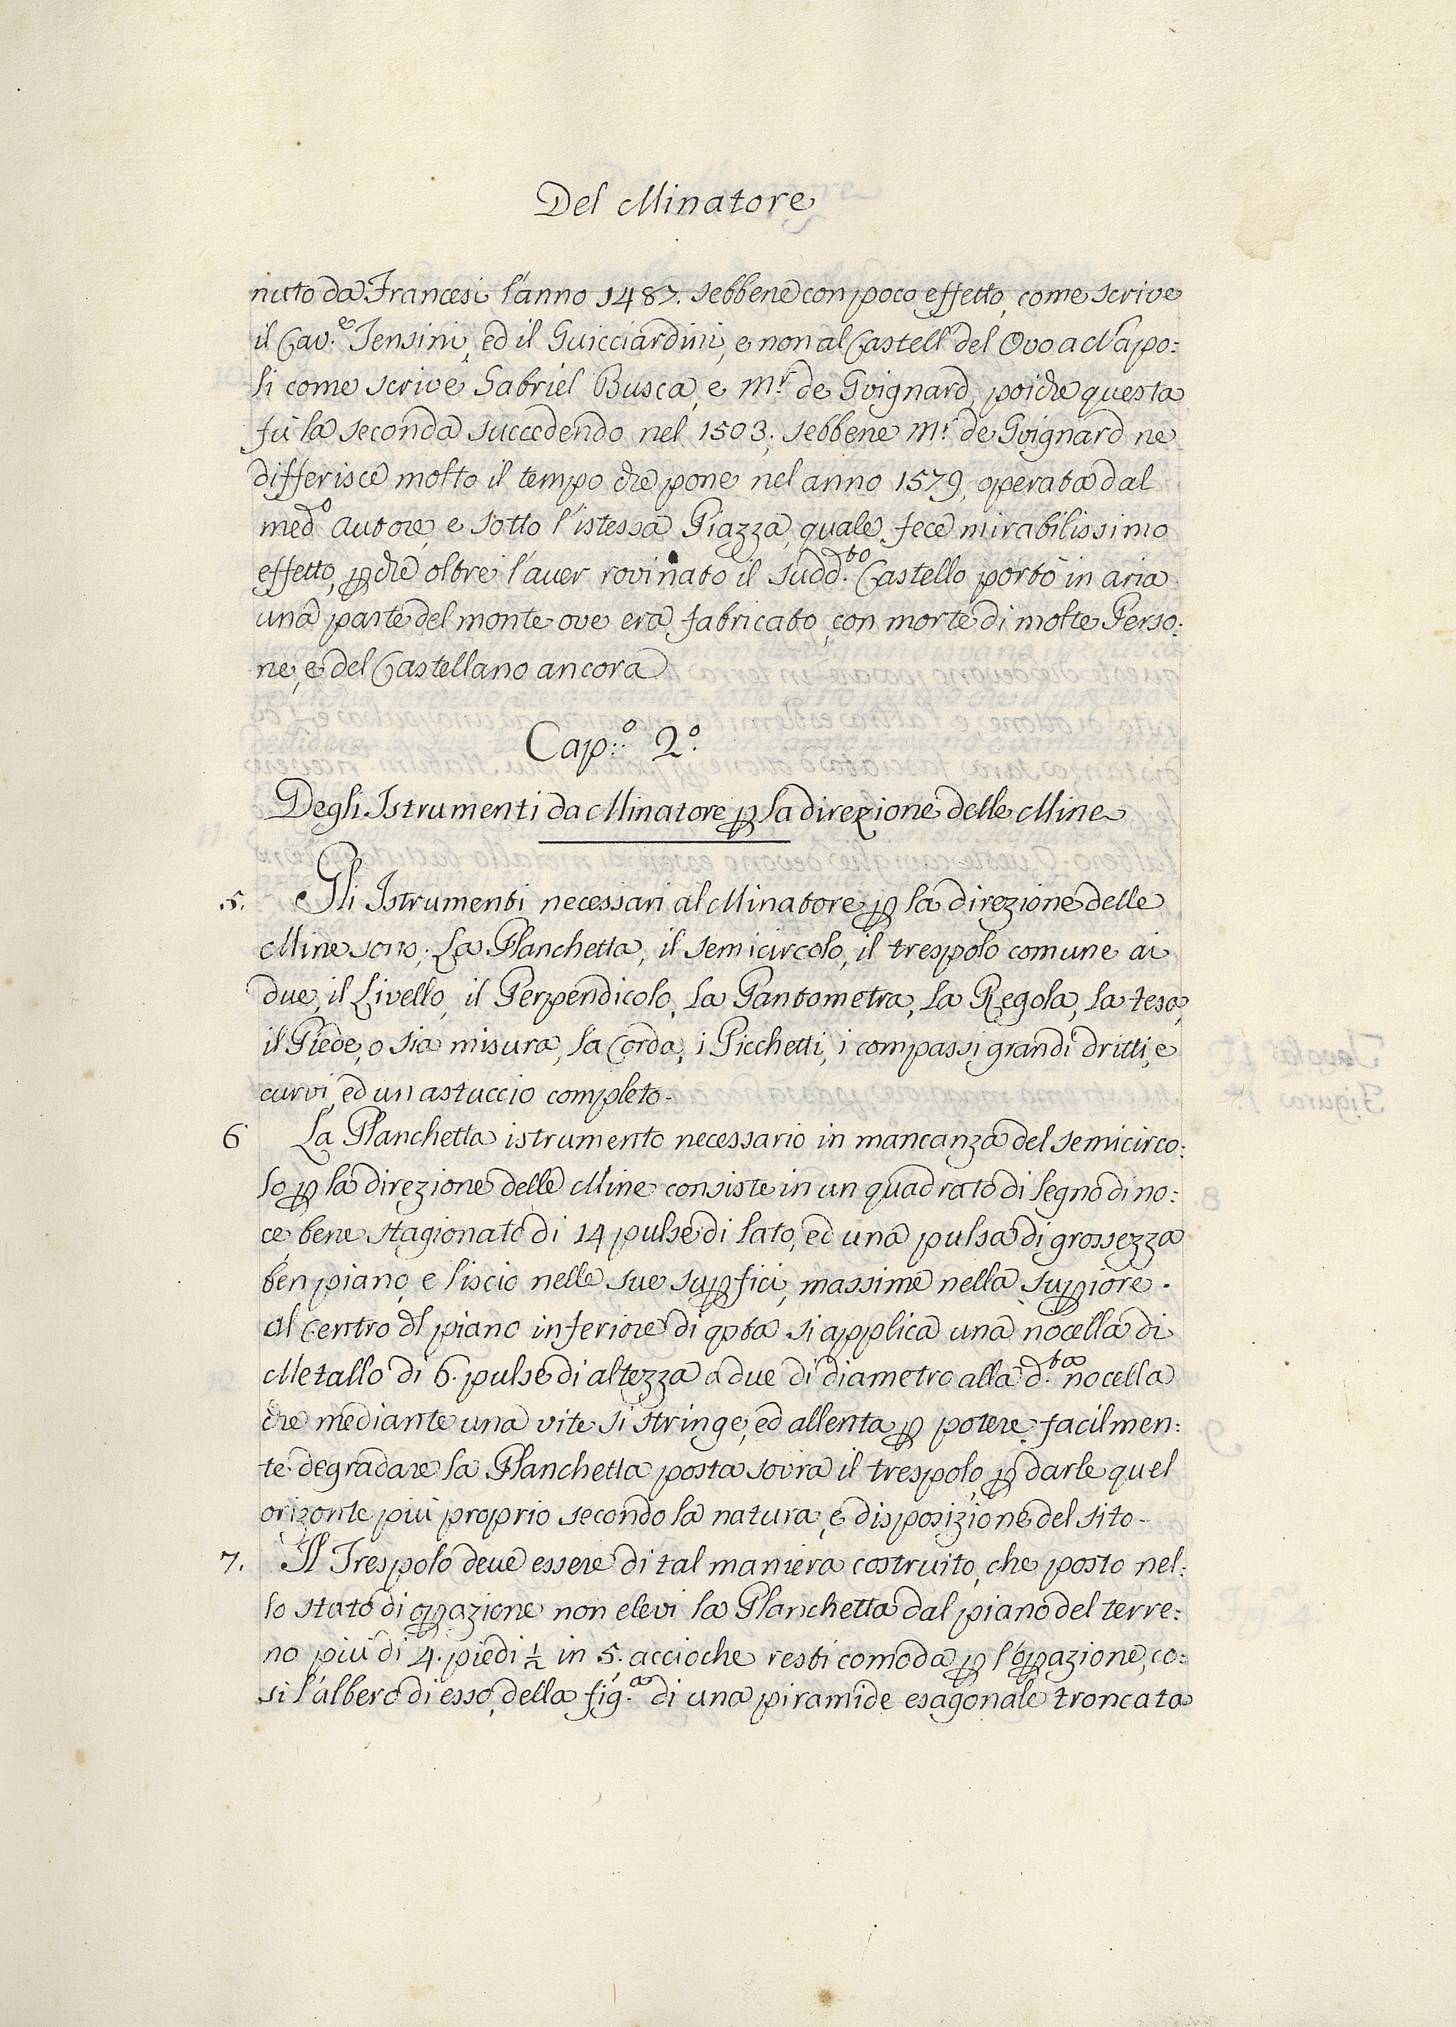 Del Minatore
nuto da Francesi l'anno 1487. sebbene con poco effetto, come scrive
il Cav.e Tensini, ed il Guicciardini, e non al Castell' del Ovo a Napo:
li come scrive Gabriel Busca, e Mr. de Gvignard, poiche questa
fù la seconda succedendo nel 1503; sebbene Mr. de Gvignard ne
differisce molto il tempo che pone nel anno 1579, operata dal
med.o Autore, e sotto l'istessa Piazza, quale fece mirabilissimo
effetto, pche oltre l'aver rovinato il sudd.to Castello portò in aria
una parte del monte ove era fabricato, con morte di molte Perso:
ne, e del Castellano ancora
Cap:o 2.o
Degli Istrumenti da Minatore p la direzione delle Mine
5. Gli Istrumenti necessari al Minatore p la direzione delle
Mine sono; La Planchetta, il semicircolo, il trespolo comune ai
due, il Livello, il Perpendicolo, La Pantometra, La Regola, la tesa,
il Piede, o sia misura, la Corda, i Picchetti, i compassi grandi dritti, e
curvi, ed un astuccio completo.
6 La Planchetta istrumento necessario in mancanza del semicirco:
lo p la direzione delle Mine consiste in un quadrato di legno di no:
ce, bene stagionato di 14 pulse di lato, ed una pulsa di grossezza
ben piano, e liscio nelle sue supfici, massime nella supiore.
Al Centro dl piano inferiore di qsta si applica una nocella di
Metallo di 6. pulse di altezza a due di diametro alla d.ta nocella
che mediante una vite si stringe, ed allenta p potere facilmen:
te degradare la Planchetta posta sovra il trespolo, p darle quel
orizonte più proprio secondo la natura, e disposizione del sito.
7. Il Trespolo deve essere di tal maniera costruito, che posto nel:
lo stato di opazione non elevi la Planchetta dal piano del terre:
no più di 4. piedi ½ in 5. accioche resti comoda p l'opazione, co:
si l'albero di esso, della fig.a di una piramide esagonale troncata